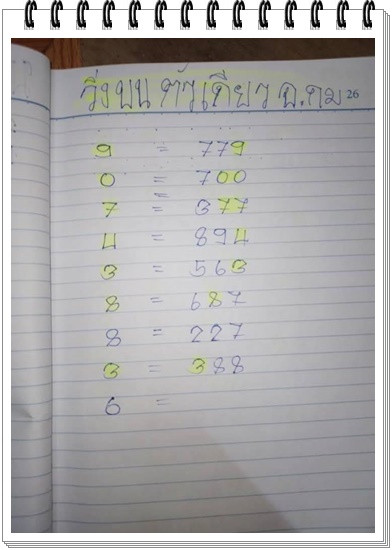 วิ่งบน ตัวเดียว อ.กม 26
9 = 779
0 = 700
7 = 377
4 = 894
3 = 563
8 = 687
8 = 227
3 = 388
6 =